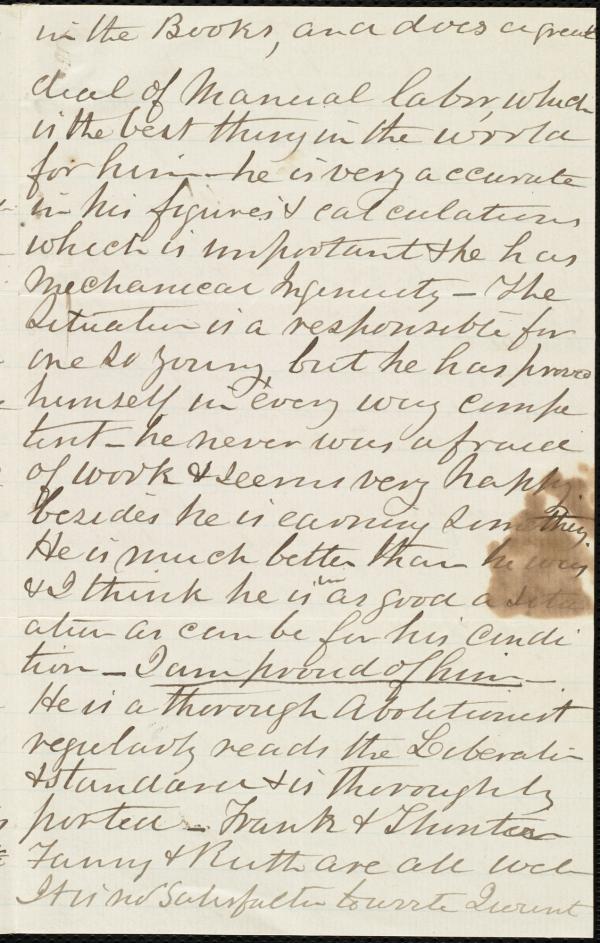 in the Books, and does a great
deal of Manual labor, which
is the best thing in the world
for him - he is very accurate
in his figures & calculations
which is important & he has
Mechanical Ingenuity - The
Situation is a responsible for
one so young, but he has proved
himself in every way compe
tent - he never was afraid
of work & seems very happy
besides he is earning something
He is much better than he was
& I think he is in as good a situ
ation as can be for his condi
tion - I am proud of him -
He is a thorough Abolitionist
regularly reads the Liberator
& Standard & is thoroughly
ported - Frank &
Fanny & Ruth are all well
It is no satisfaction to write I want